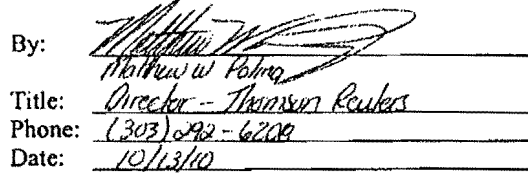 By:
Matthew W Polma
Title: Director - Thomson Reuters
Phone: (303) 292-6209
Date: 10/13/10